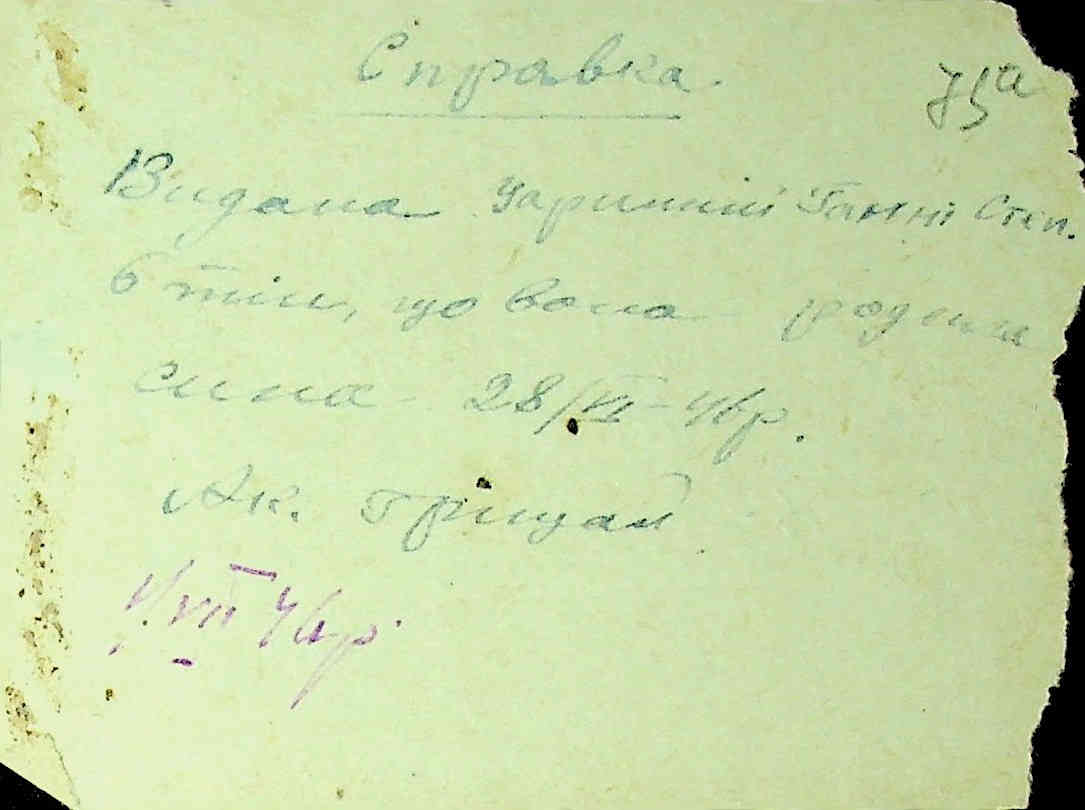 Справка.
75а
Видана Царинній Ганні Степ.
в тім, що вона родила
сина 28/VI-46р.
Ак. Грицай
1/VII 46р.